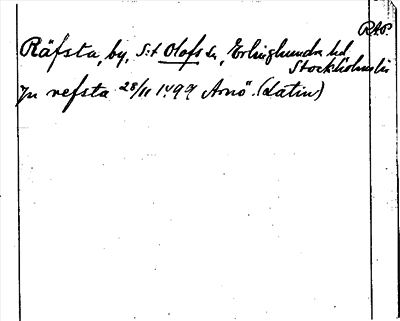 RAP.
Räfsta, by, S:t Olofs sn, Erlinghundra hd
Stockholms län
In refsta 28/11 1499 Arnö. (Latin)